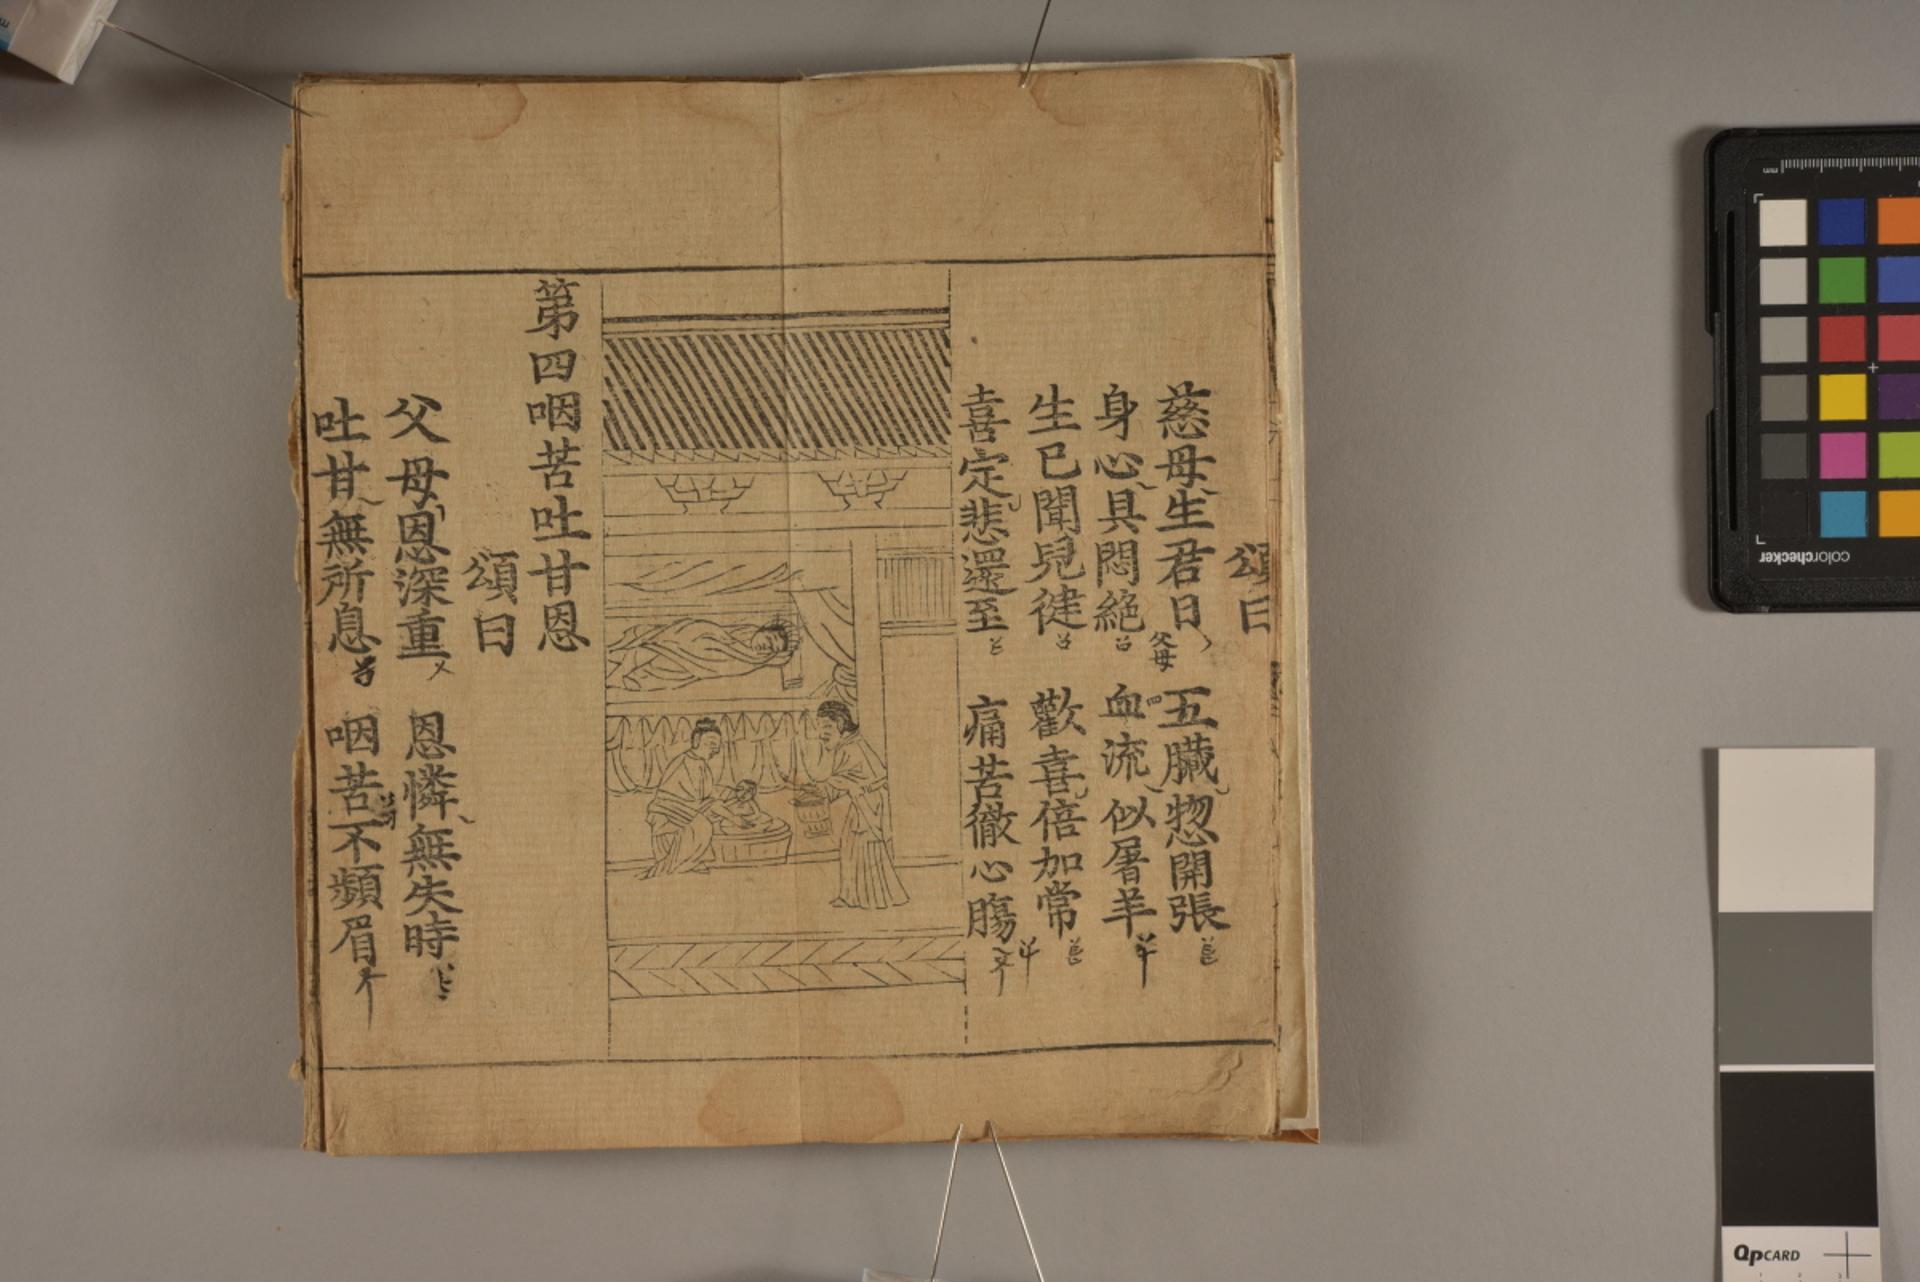 頌曰
慈母生君日 五臟惣開張
身心具悶絶 血流似屠羊
父母
生已聞兒徤 歡喜倍加常
喜定悲還至 痛苦徹心膓
第四咽苦吐甘恩
頌曰
父母恩深重 恩憐無失時
吐甘無所息 咽苦不頻眉
colorchecker
mm
QPCARD